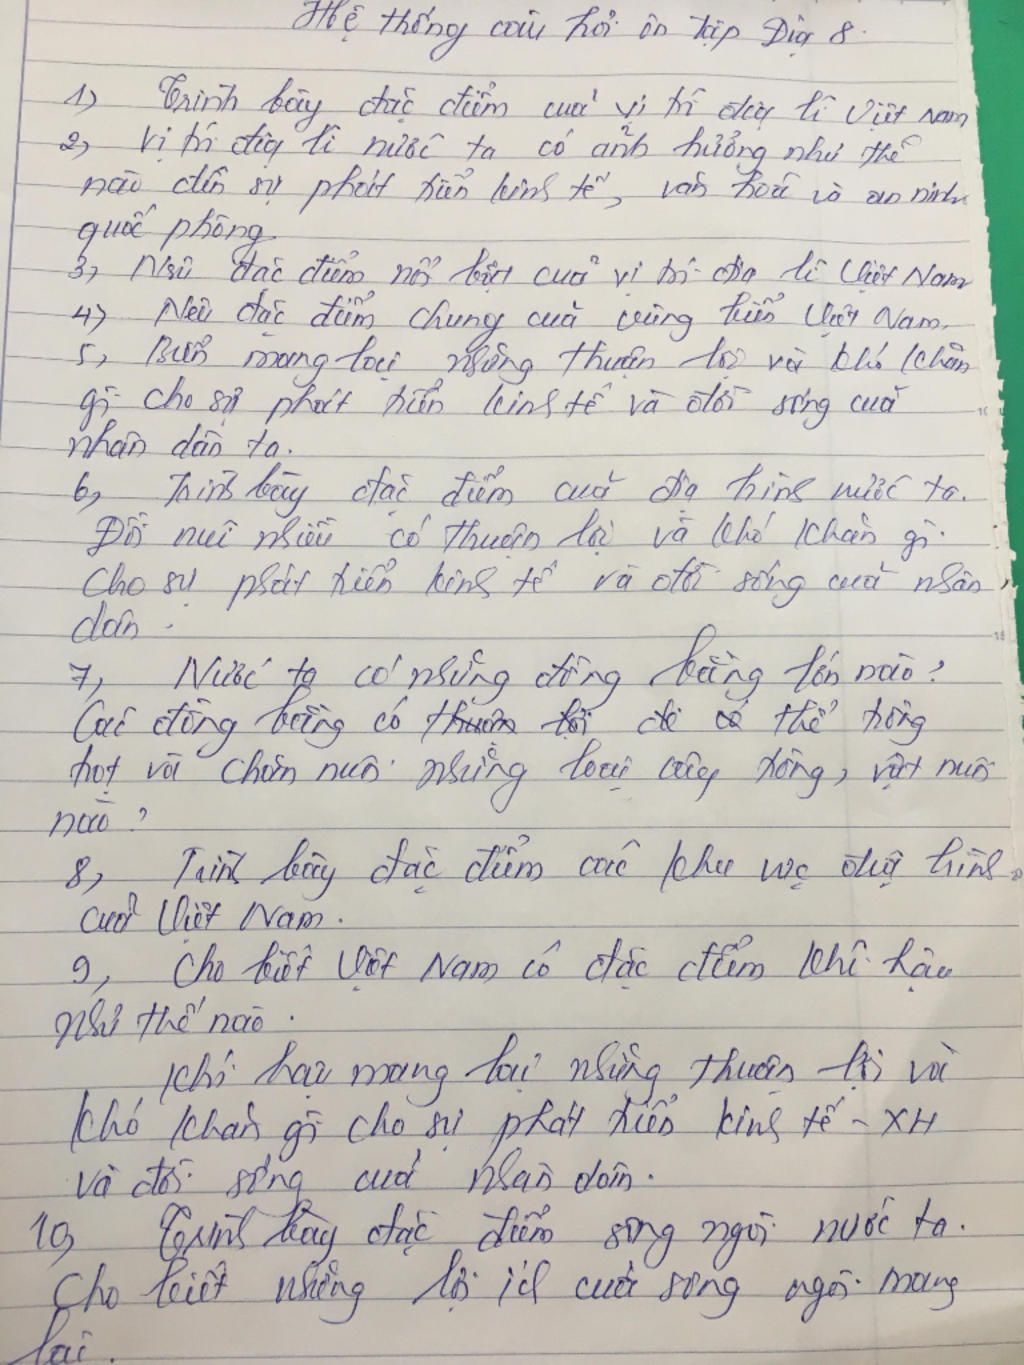 Hệ thống câu hỏi ôn tập Địa 8.
1, Trình bày đặc điểm của vị trí địa lí Việt Nam
2, Vị trí địa lí nước ta có ảnh hưởng như thế
nào đến sự phát triển kinh tế, văn hoá và an ninh
quốc phòng.
3, Nêu đặc điểm nổi bật của vị trí địa lí Việt Nam
4, Nêu đặc điểm chung của vùng biển Việt Nam.
5, Biển mang lại những thuận lợi và khó khăn
gì cho sự phát triển kinh tế và đời sống của
nhân dân ta.
6, Trình bày đặc điểm của địa hình nước ta.
Đồi núi nhiều có thuận lợi và khó khăn gì
cho sự phát triển kinh tế và đời sống của nhân
dân.
7, Nước ta có những đồng bằng lớn nào?
Các đồng bằng có thể trồng
trọt và chăn nuôi những loại cây trồng, vật nuôi
nào?
8, Trình bày đặc điểm các khu vực địa hình
của Việt Nam.
9, Cho biết Việt Nam có đặc điểm khí hậu
như thế nào.
Khí hậu mang lại những thuận lợi và
khó khăn gì cho sự phát triển kinh tế - XH
và đời sống của nhân dân.
10, Trình bày đặc điểm sông ngòi nước ta.
Cho biết những lợi ích của sông ngòi mang
lại.